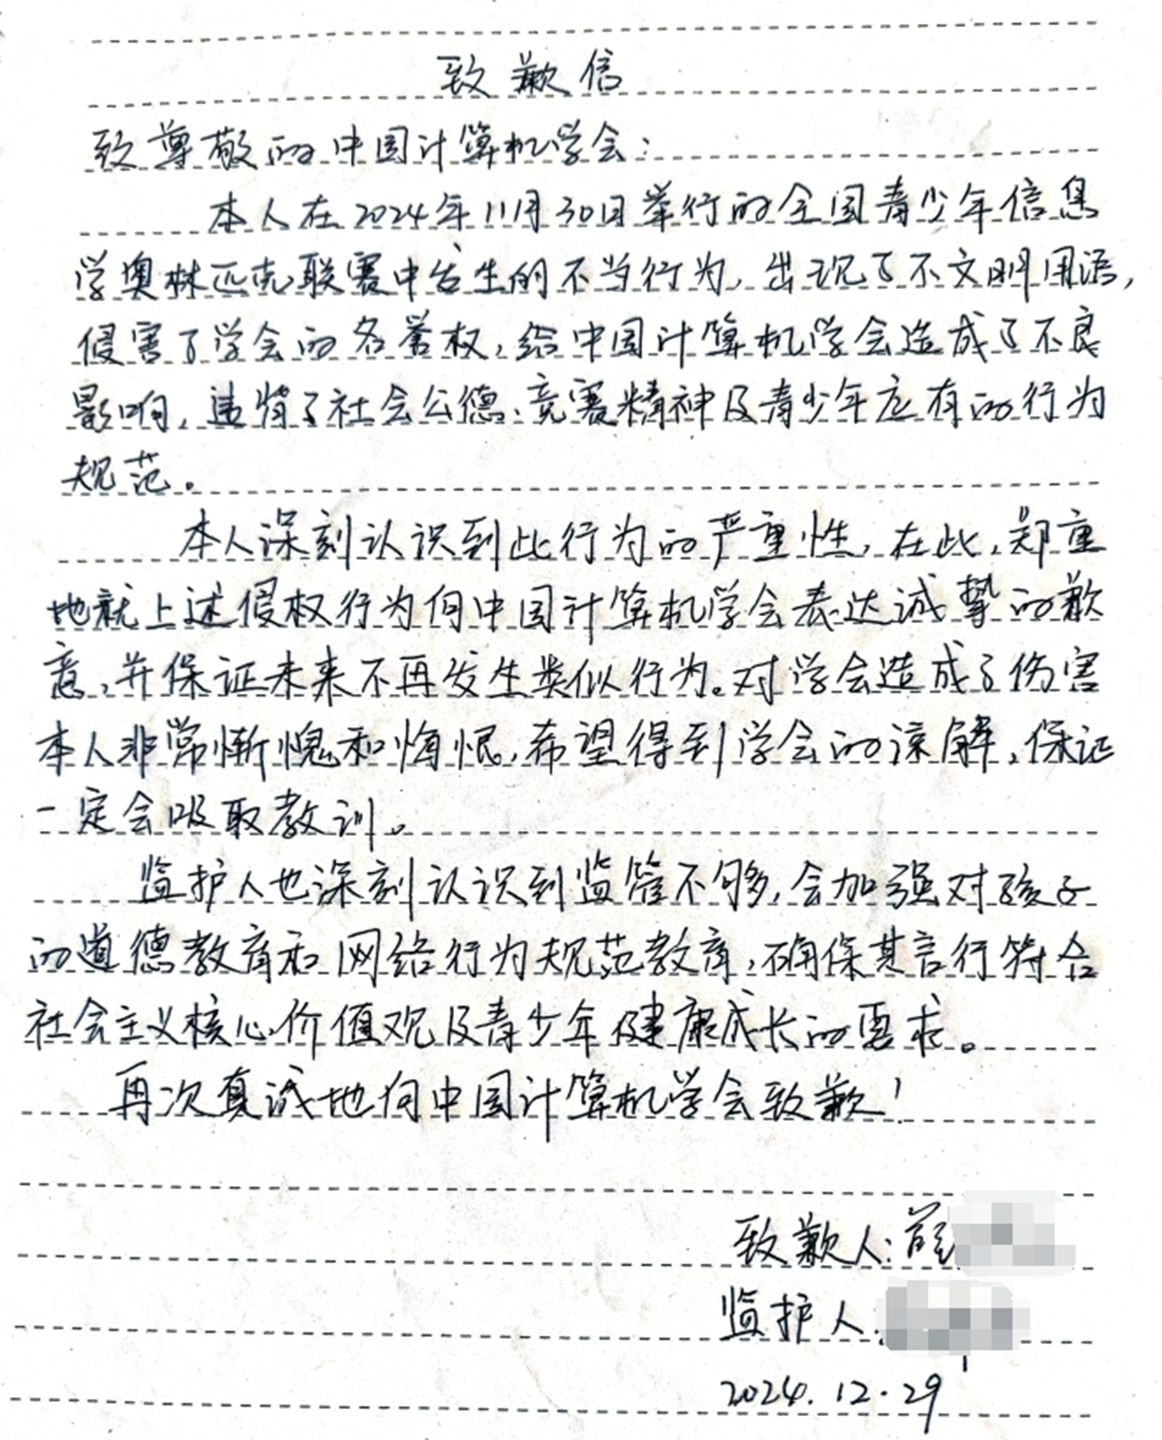 致歉信
致尊敬的中国计算机学会:
本人在2024年11月30日举行的全国青少年信息
学奥林匹克联赛中发生的不当行为,出现了不文明用语,
侵害了学会的名誉权,给中国计算机学会造成了不良
影响,违背了社会公德、竞赛精神及青少年应有的行为
规范。
本人深刻认识到此行为的严重性,在此,郑重
地就上述侵权行为向中国计算机学会表达诚挚的歉
意,并保证未来不再发生类似行为。对学会造成了伤害
本人非常惭愧和悔恨,希望得到学会的谅解,保证
一定会吸取教训。
监护人也深刻认识到监管不够,会加强对孩子
的道德教育和网络行为规范教育,确保其言行符合
社会主义核心价值观及青少年健康成长的要求。
再次真诚地向中国计算机学会致歉!
致歉人:薛
监护人:
2024.12.29